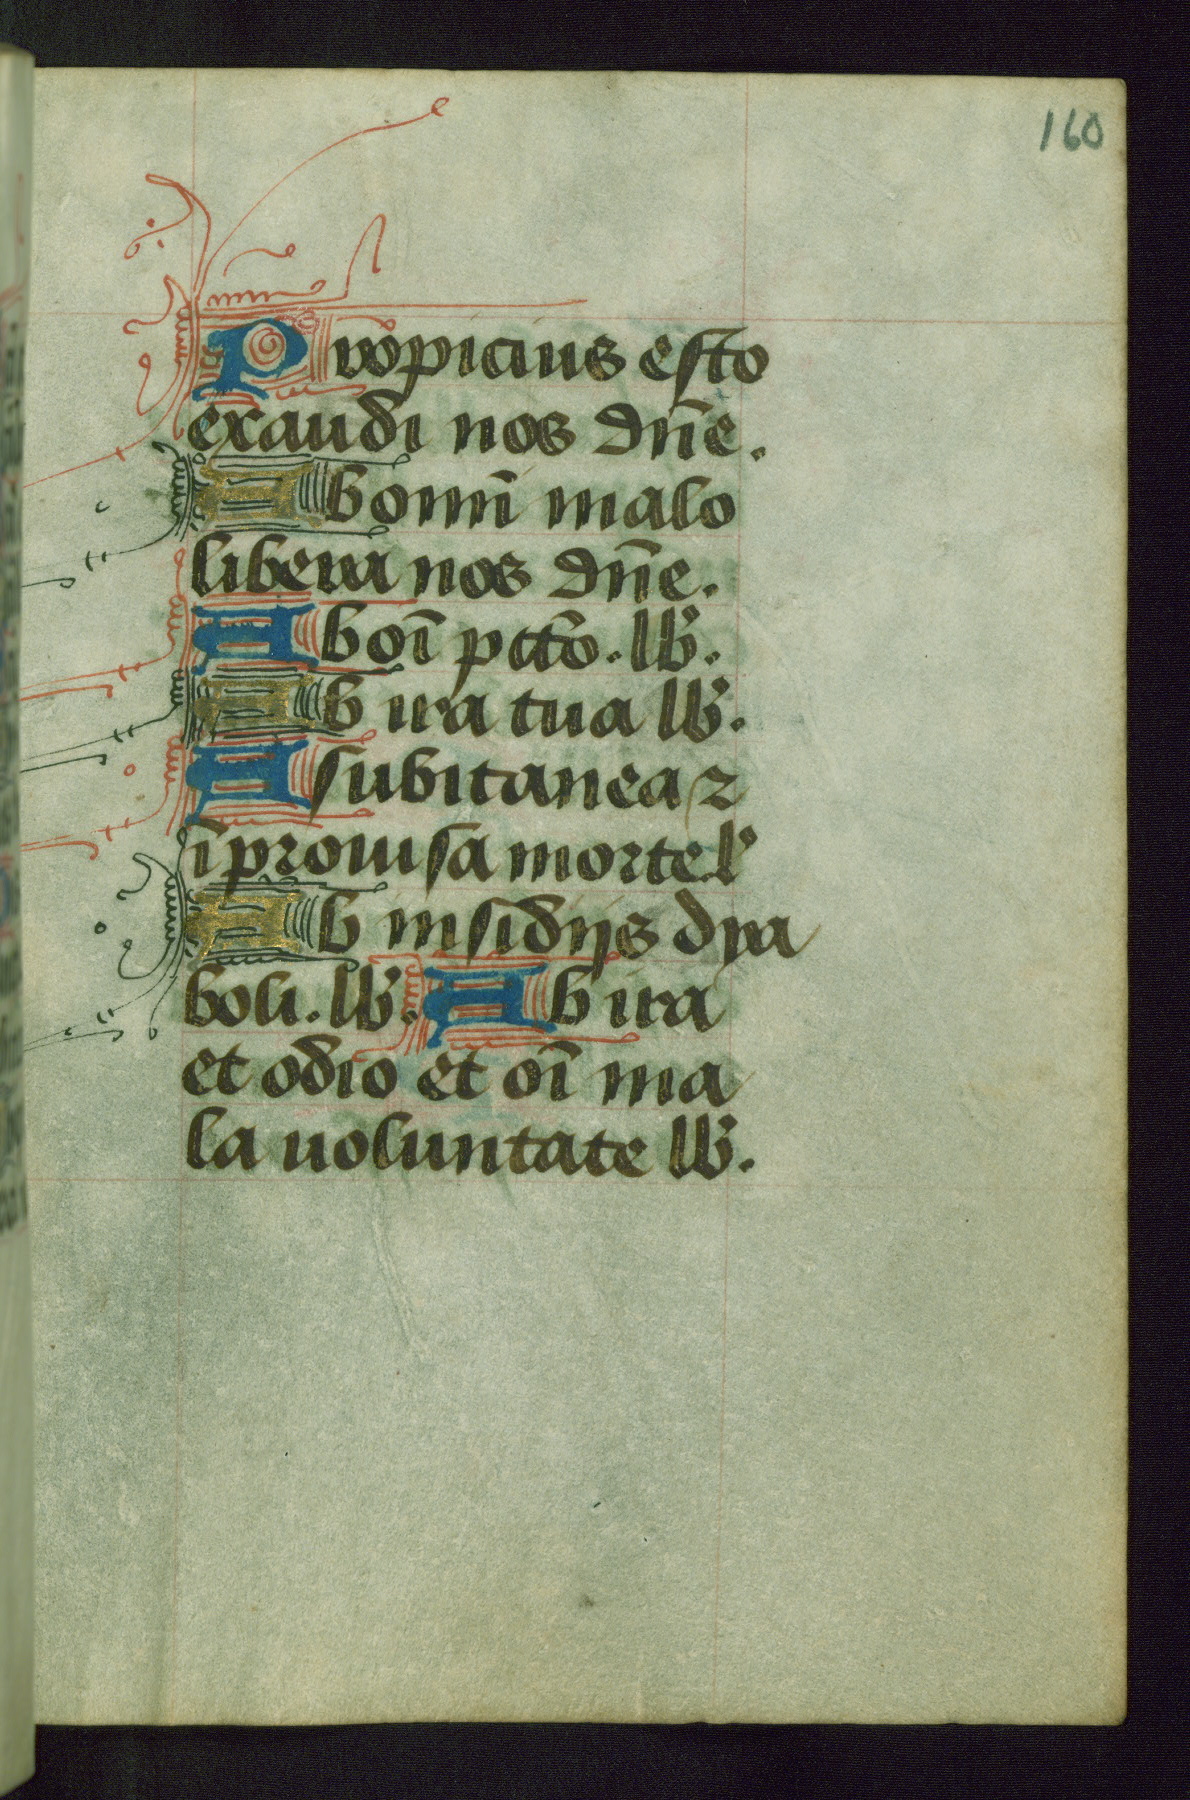 160
Propicius esto
exaudi nos dn̄e.
Ab omnī malo
libera nos dn̄e.
Ab oī pctō. lb̾.
Ab ira tua lb̾.
A subitanea ⁊
īprouisa morte. l̾
Ab insidijs dya
boli. lb̾. Ab ira
et odio et oī ma
la uoluntate lb̾.